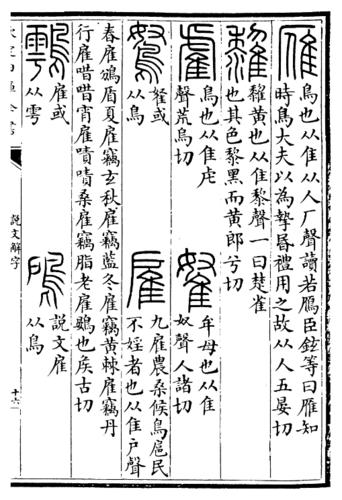 雁
鳥也从隹从人厂聲讀若鴈臣鉉等曰雁知
時鳥大夫以為摯昬禮用之故从人五晏切
黄也从隹黎聲一曰楚雀
也其色黎黑而黄郎兮切
雐
鳥也从隹虍
聲荒烏切
牟母也从隹
奴聲人諸切
鴽
或
从鳥
雇
九雇農桑候鳥扈民
不婬者也从隹戶聲
春雇鳻盾夏雇竊玄秋雇竊藍冬雇竊黄棘雇竊丹
行雇唶唶宵雇嘖嘖桑雇竊脂老雇鷃也矦古切
雇或
从雩
鳸
說文雇
从鳥
說文解字
十六